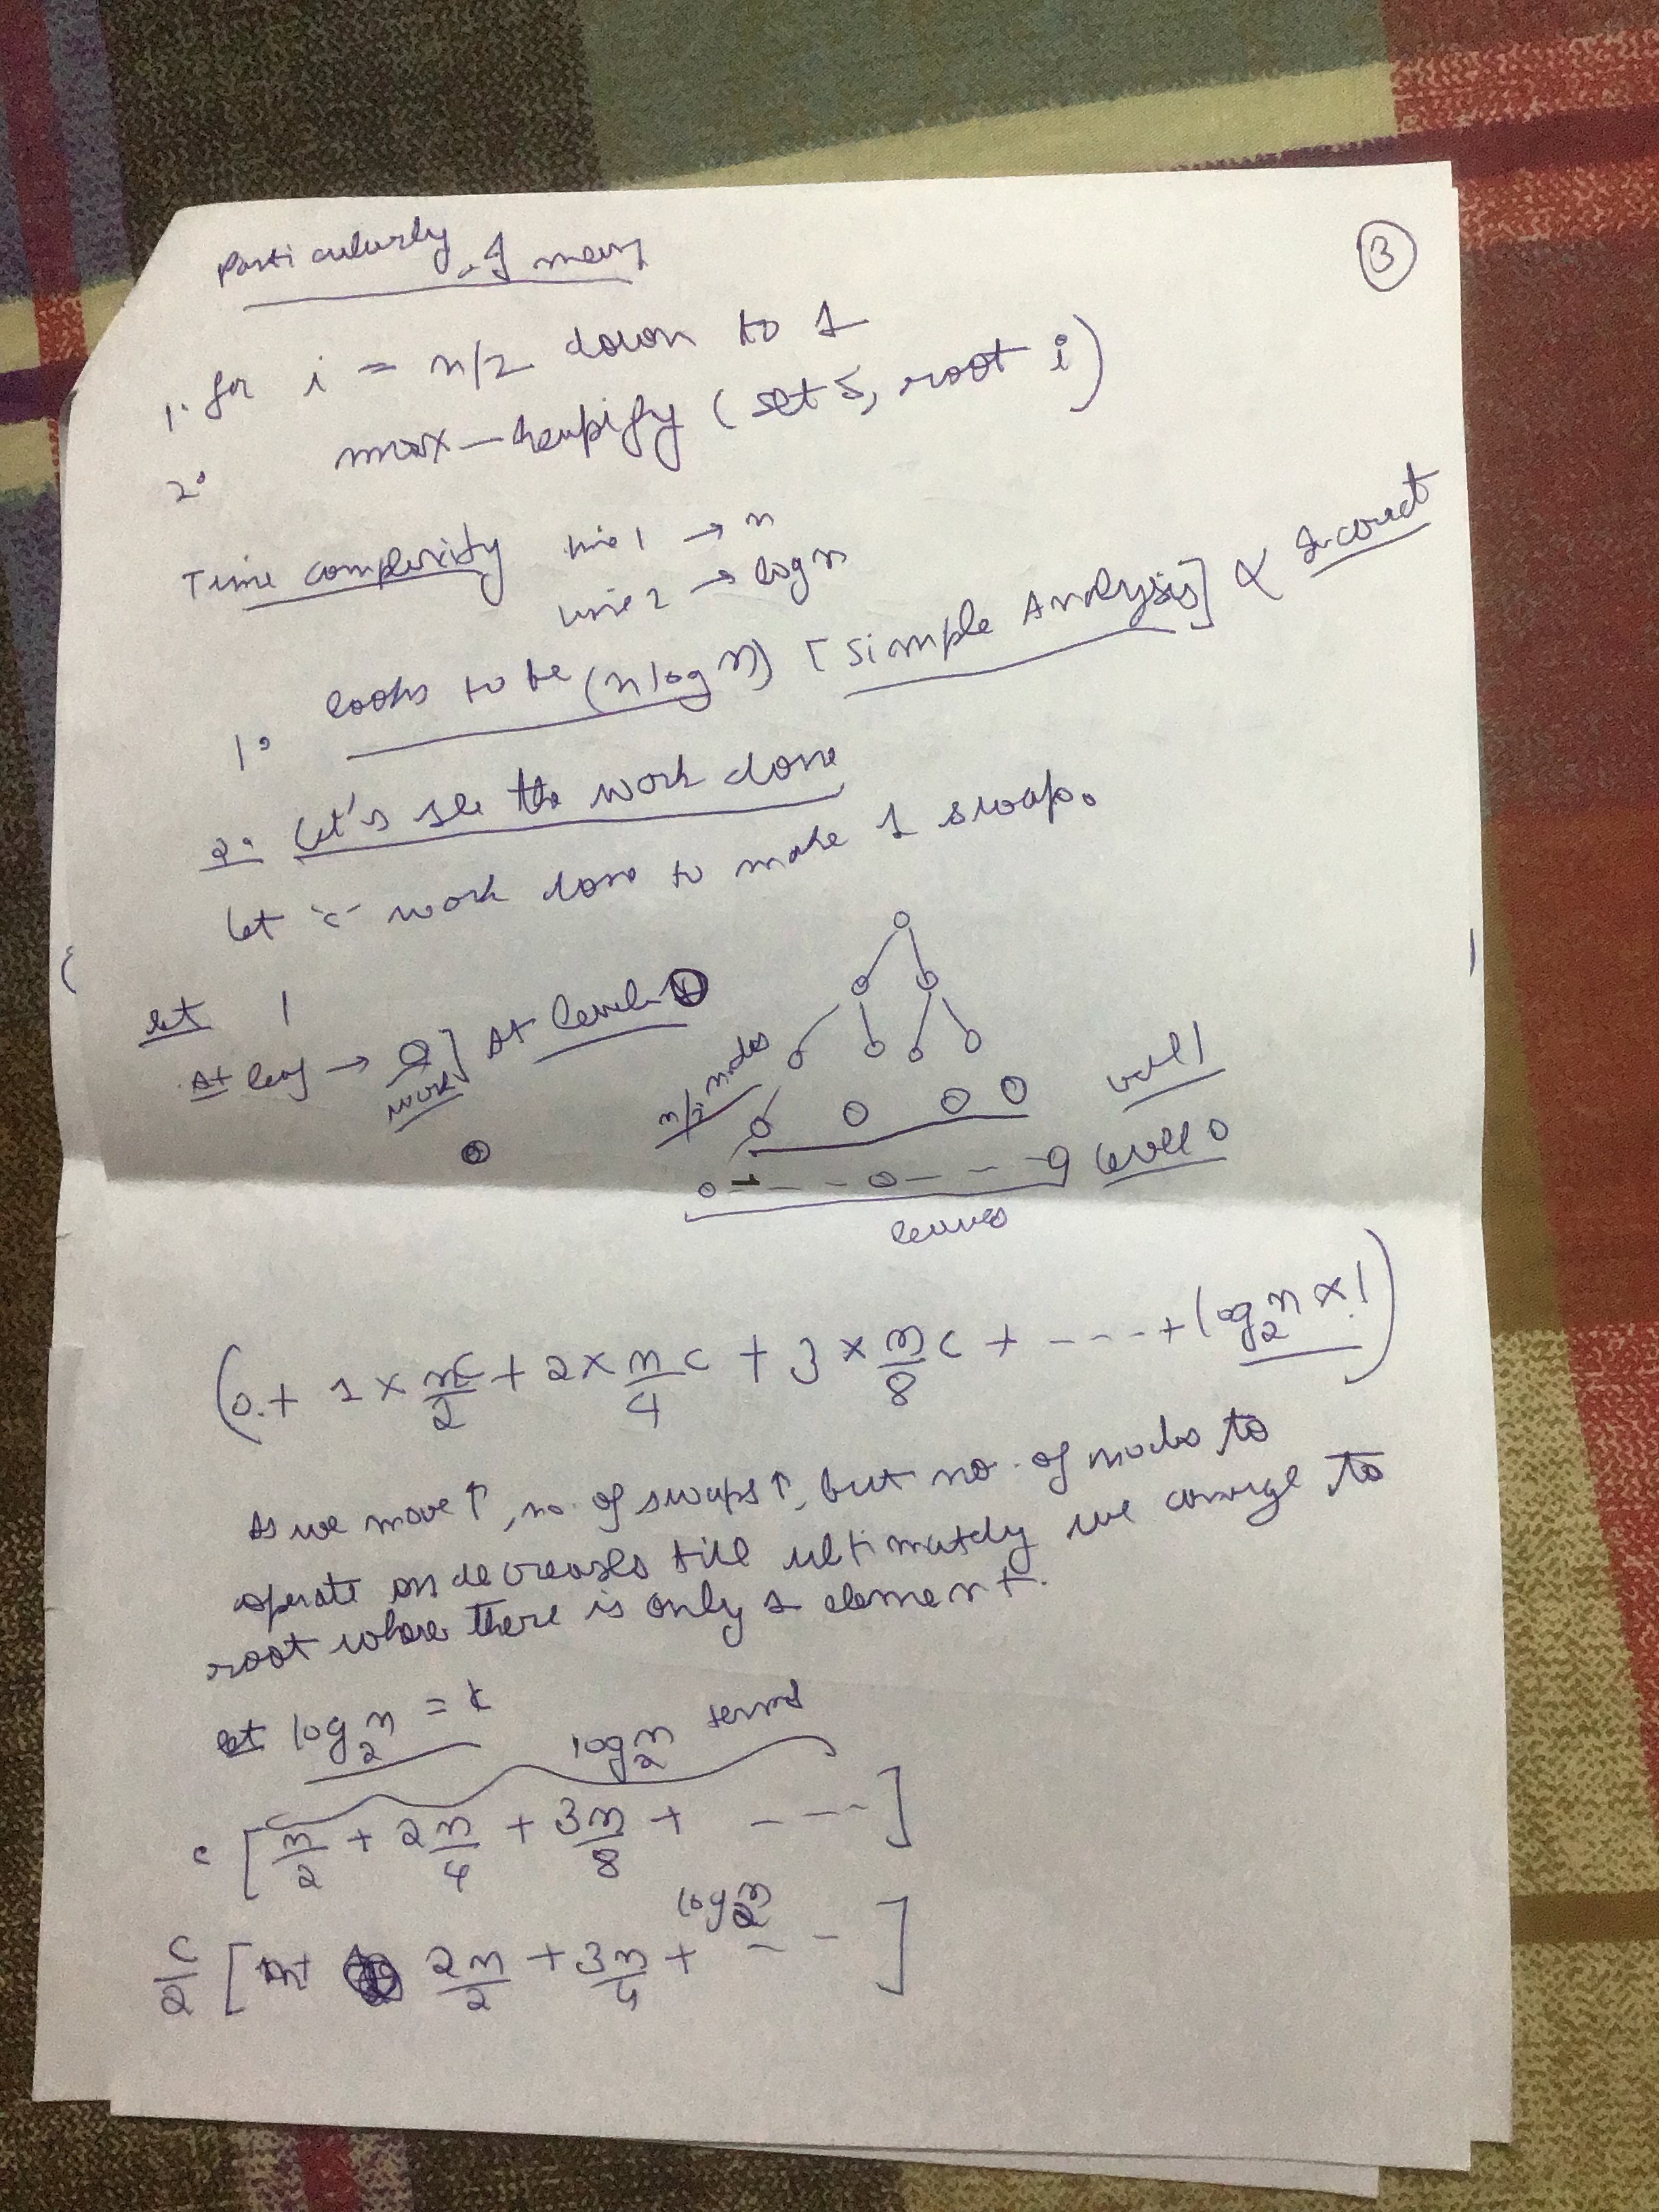 ③
Particularly
1. for i = n/2 down to 1
2. max-heapify (set S, root i)
Time complexity line 1 → n
line 2 → log n
1. looks to be (n log n) [Simple Analysis] Incorrect
2. Let's see the work done
Let 'c' work done to make 1 swap.
let
At leaf → 0 work] At level
n/2 nodes
level 1
level 0
leaves
(0 + 1 × nc/2 + 2 × n/4 c + 3 × n/8 c + ---- + log₂n × 1)
As we move ↑, no. of swaps ↑, but no. of nodes to
operate on decreases till ultimately we converge to
root where there is only 1 element.
let log₂n = k
log₂n terms
c [n/2 + 2n/4 + 3n/8 + ----]
log₂n
c/2 [n + 2n/2 + 3n/4 + --]